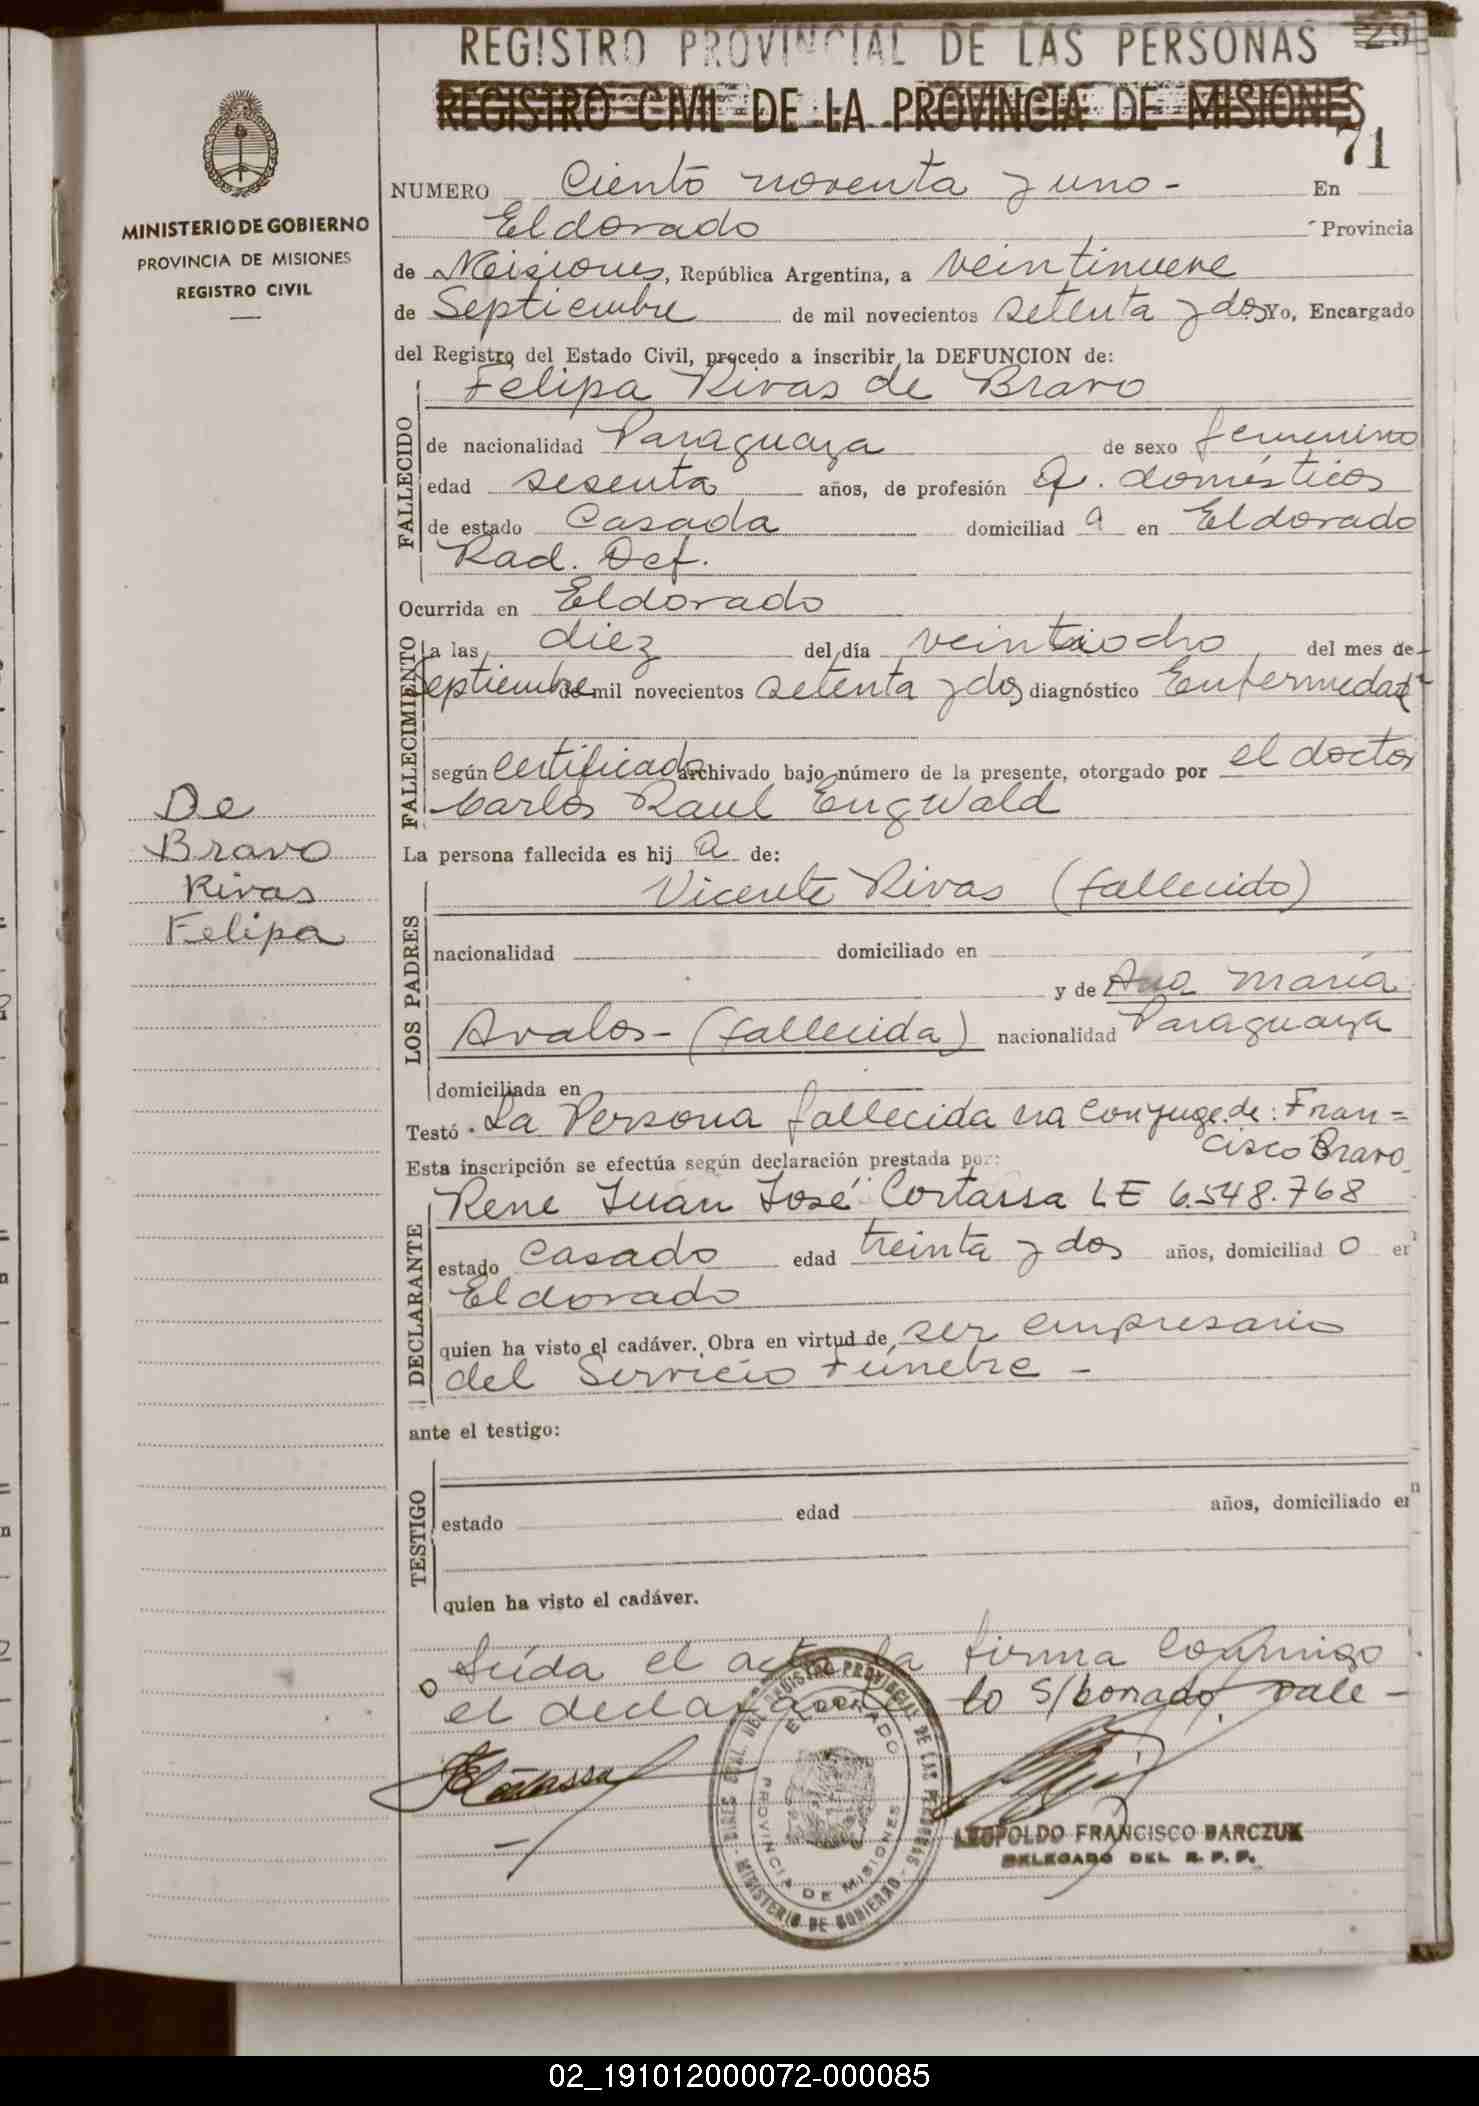 REGISTRO PROVINCIAL DE LAS PERSONAS
REGISTRO CIVIL DE LA PROVINCIA DE MISIONES
71
MINISTERIO DE GOBIERNO
PROVINCIA DE MISIONES
REGISTRO CIVIL
De
Bravo
Rivas
Felipa
NUMERO Ciento noventa y uno - En
Eldorado Provincia
de Misiones, República Argentina, a veintinueve
de Septiembre de mil novecientos setenta y dos Yo, Encargado
del Registro del Estado Civil, procedo a inscribir la DEFUNCION de:
Felipa Rivas de Bravo
FALLECIDO
de nacionalidad Paraguaya de sexo femenino
edad sesenta años, de profesión Q. domésticos
de estado Casada domiciliad a en Eldorado
Rad. Def.
Ocurrida en Eldorado
FALLECIMIENTO
a las diez del día veintiocho del mes de
Septiembre de mil novecientos setenta y dos diagnóstico Enfermedad
según Certificado archivado bajo número de la presente, otorgado por el doctor
Carlos Raul Engwald
La persona fallecida es hij a de:
LOS PADRES
Vicente Rivas (fallecido)
nacionalidad domiciliado en
y de Ana María
Avalos - (fallecida) nacionalidad Paraguaya
domiciliada en
Testó - La Persona fallecida era Conyuge de: Fran=
cisco Bravo
Esta inscripción se efectúa según declaración prestada por:
DECLARANTE
Rene Juan José Cortassa LE 6.548.768
estado Casado edad treinta y dos años, domiciliad o en
Eldorado
quien ha visto el cadáver. Obra en virtud de ser empresario
del Servicio Funebre -
ante el testigo:
TESTIGO
estado edad años, domiciliado en
quien ha visto el cadáver.
Leída el acta la firma conmigo
el declarante lo s/borrado, vale -
Cortassa
DIREC. GRAL. DEL REGISTRO PROVINCIAL DE LAS PERSONAS - MINISTERIO DE GOBIERNO -
ELDORADO
PROVINCIA DE MISIONES
LEOPOLDO FRANCISCO BARCZUK
DELEGADO DEL R. P. P.
02_191012000072-000085